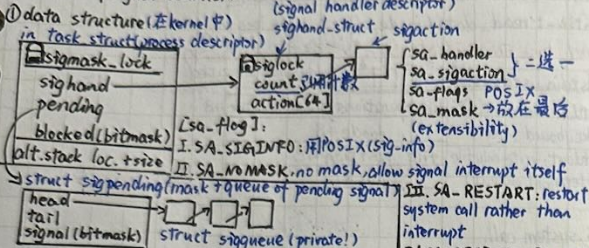 ①data structure(在kernel中)
in task struct(process descriptor)
(signal handler descriptor)
sighand-struct
sigaction
sigmask_lock
sighand
pending
blocked(bitmask)
alt.stack loc.+size
siglock
count 引用计数
action[64]
sa_handler
sa_sigaction } 二选一
sa-flags POSIX
sa_mask →放在最后
(extensibility)
[sa_flag]:
I. SA_SIGINFO: 用POSIX(sig-info)
II. SA_NOMASK, no mask, allow signal interrupt itself
III. SA-RESTART: restart
system call rather than
interrupt
struct sigpending(mask+queue of pending signal)
head
tail
signal(bitmask)
struct sigqueue (private!)